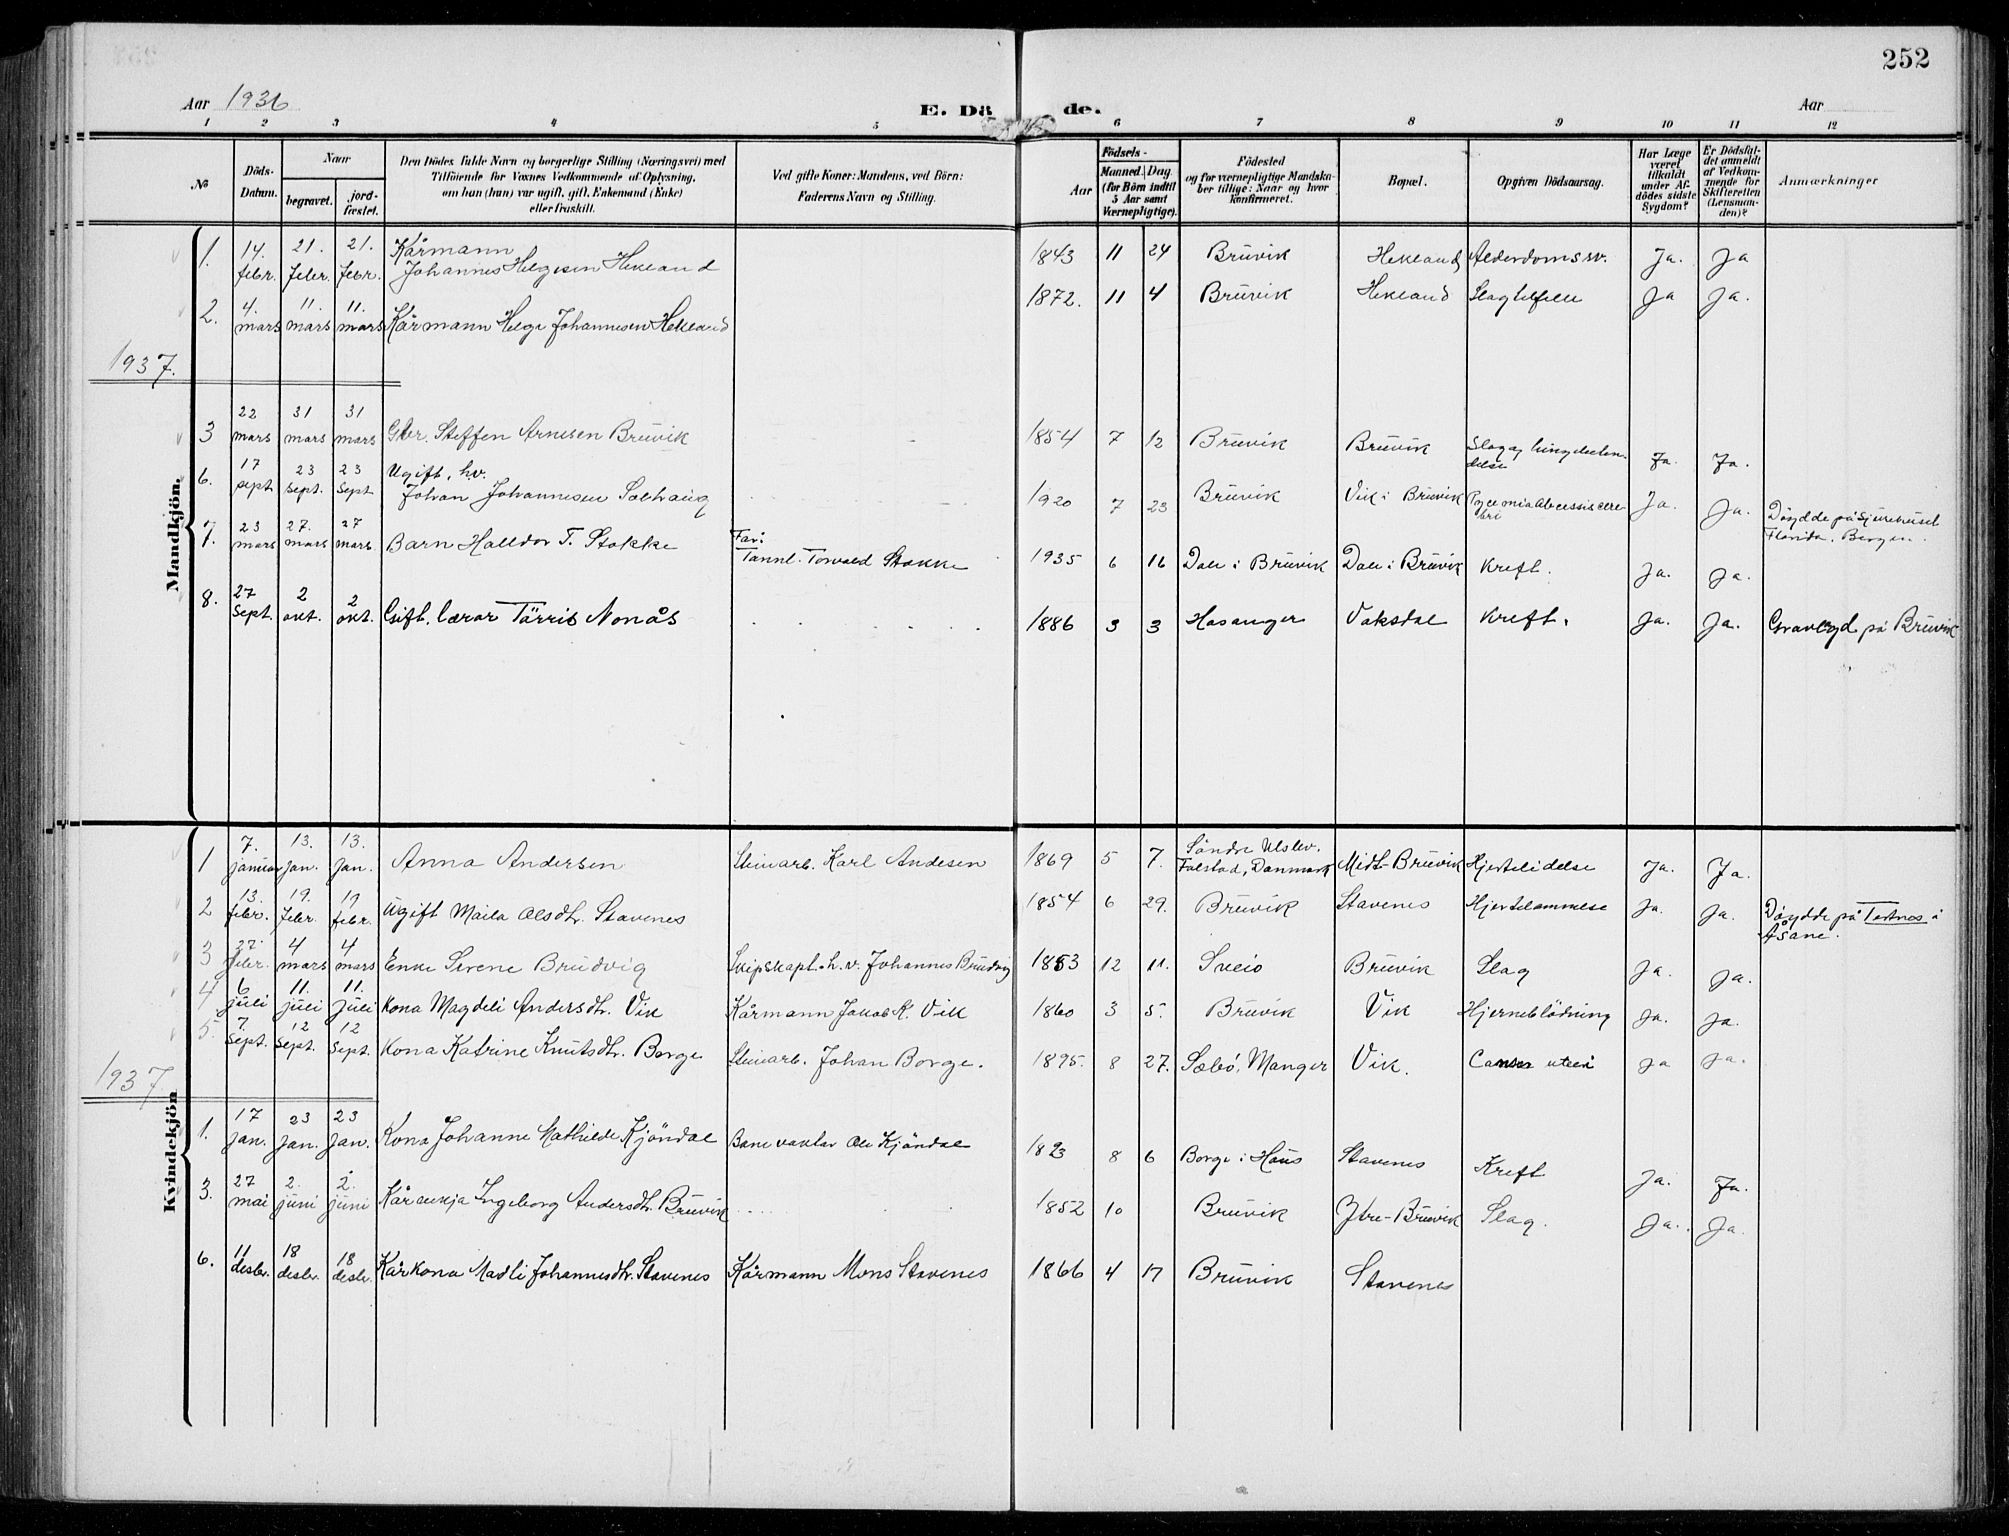 252
Aar 1936
E. Dö de.
Aar
1 2 3 4 5 6 7 8 9 10 11 12
No
Döds-Datum.
Naar
begravet.
jord-fæstet.
Den Dödes fulde Navn og borgerlige Stilling (Næringsvei) med
Tilföiende for Voxnes Vedkommende af Oplysning,
om han (hun) var ugift, gift, Enkemand (Enke)
eller fraskilt.
Ved gifte Koner: Mandens, ved Börn:
Faderens Navn og Stilling.
Födsels-
Aar
Maaned. Dag
(for Börn indtil
5 Aar samt
Værnepligtige).
Födested
og for værnepligtige Mandska-
ber tillige: Naar og hvor
konfirmeret.
Bopæl.
Opgiven Dödsaarsag.
Har Læge
været
tilkaldt
under Af-
dödes sidste
Sygdom?
Er Dödsfal-
det anmeldt
af Vedkom-
mende for
Skifteretten
(Lensman-
den)?
Anmærkninger
Mandkjön.
1. 14. febr. 21. febr. 21. febr. Kårmann Johannes Helgesen Hekland 1843 11 24 Bruvik Hekland Alderdomssv. Ja. Ja
2. 4. mars 11. mars 11. mars Kårmann Helge Johannesen Hekland 1872. 11 4 Bruvik Hekland Slagtilfelle Ja Ja.
1937.
3 22 mars 31 mars 31 mars Gbr. Steffen Arnesen Bruvik 1854 7 12 Bruvik Bruvik Slag og Ja. Ja.
6. 17 sept 23 sept. 23 sept Ugift, h.v. Johan Johannesen Solhaug 1920 7 23 Bruvik Vik i Bruvik Ja. Ja. Döydde på Sjukehuset Florida, Bergen.
7. 23 mars 27. mars 27 mars. Barn Halldor T. Stokke Far: Tannl. Torvald Stokke 1935 6 16 Dale i Bruvik Dale i Bruvik Kreft. Ja. Ja.
8. 27 sept. 2 okt. 2 okt. Gift. lærar Tärris Nonås 1886 3 3 Hosanger Vaksdal Kreft. Ja. Ja. Gravlagd på Bruvik
Kvindekjön
1 7. januar 13. jan. 13. jan. Anna Andersen Steinarb. Karl Andesen 1869 5 7. Söndre Ulslev. Falstad, Danmark Midt-Bruvik Hjertelidelse Ja. Ja.
2 13. febr. 19. febr. 19 febr. Ugift Maila Olsdtr. Stavenes 1854 6 29. Bruvik Stavenes Hjertelammelse Ja. Ja. Döydde på Tertnes i Åsane.
3 27 febr. 4 mars 4 mars Enke Serene Brudvig Skipskapt. h.v. Johannes Brudvig 1853 12 11. Sveio Bruvik Slag Ja. Ja.
4 6 juli 11. juli 11. juli Kona Magdeli Andersdtr. Vik Kårmann Jakob K. Vik 1860 3 5. Bruvik Vik Hjerneblödning Ja. Ja.
5. 7. sept. 12 sept. 12 sept. Kona Katrine Knutsdtr. Borge Steinarb. Johan Borge. 1895. 8 27. Sæbö, Manger Vik. Cancer uteri Ja Ja.
1937
1. 17 jan. 23 jan. 23 jan. Kona Johanne Mathilde Kjöndal Banevaktar Ole Kjöndal 8 6 Borge i Haus Stavenes Kreft Ja. Ja.
3. 27 mai 2. juni 2. juni Kårenkja Ingeborg Andersdtr. Bruvik 1852 10 Bruvik Ytre-Bruvik Slag. Ja. Ja.
6. 11 desbr. 18 desbr. 18 desbr. Kårkona Madli Johannesdtr. Stavenes Kårmann Mons Stavenes 1866 4 17 Bruvik Stavenes